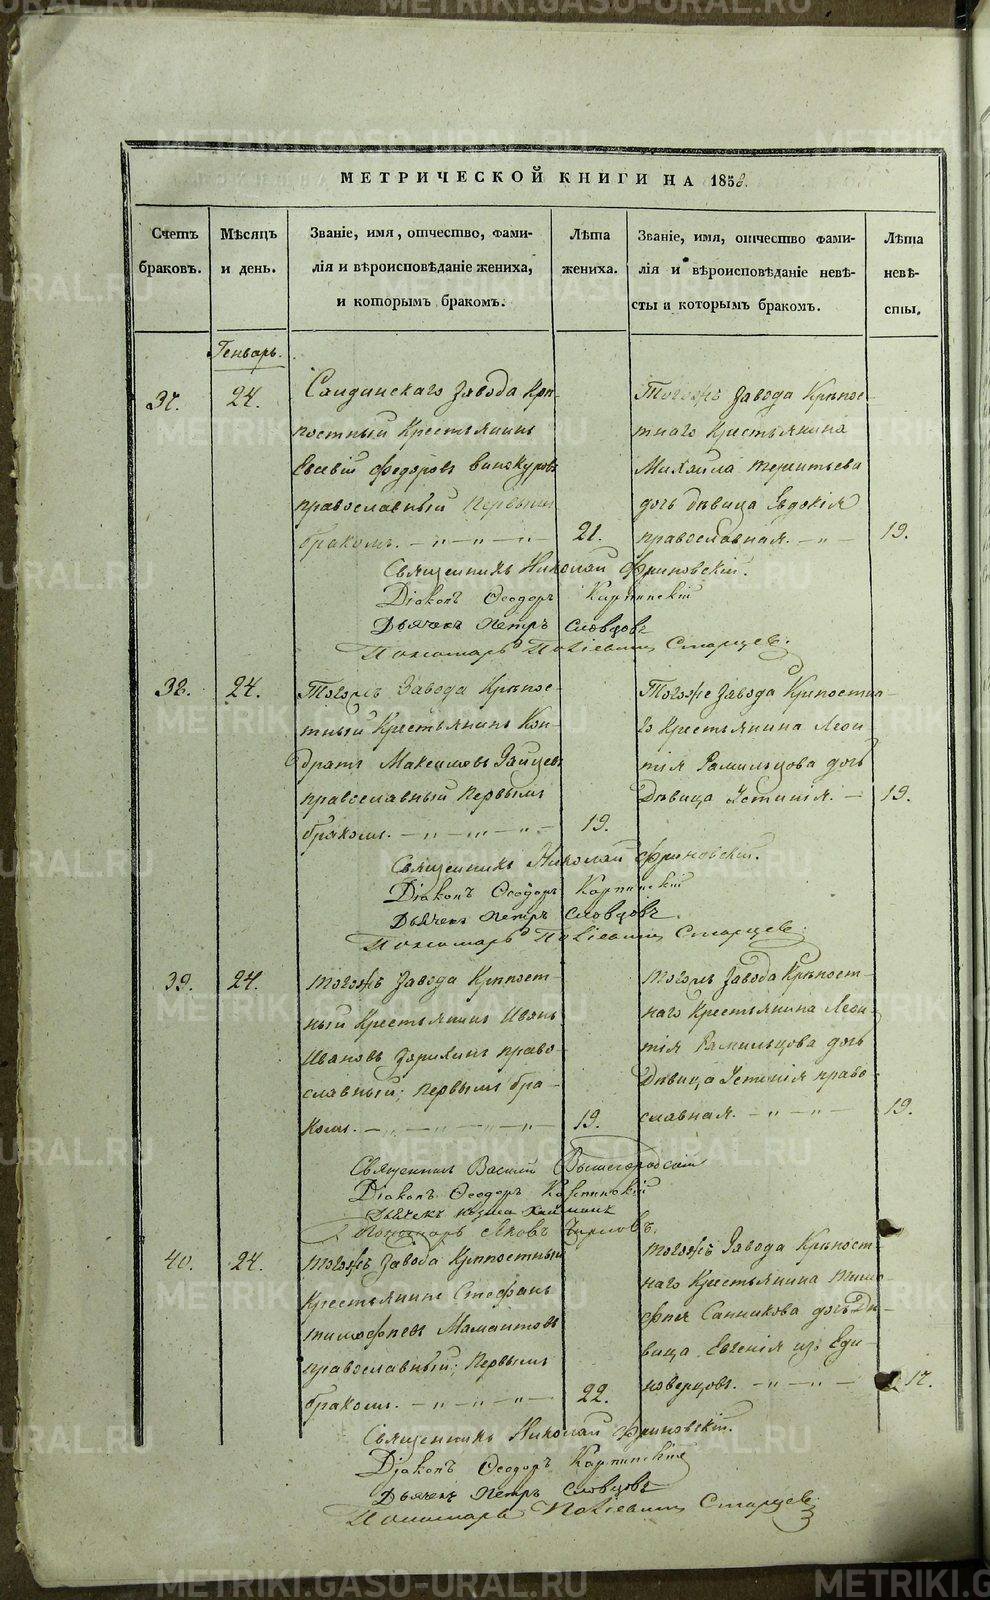 МЕТРИЧЕСКОЙ КНИГИ НА 1858.
Счетъ браковъ.
Мѣсяцъ и день.
Званіе, имя, отчество, фами-
лія и вѣроисповѣданіе жениха,
и которымъ бракомъ.
Лѣта жениха.
Званіе, имя, отчество фами-
лія и вѣроисповѣданіе невѣ-
сты и которымъ бракомъ.
Лѣта невѣ-
сты.
Генварь.
37.
24.
Салдинскаго завода Крѣ-
постный Крестьянинъ
Евсевій Федоровъ Винокуровъ
православный первымъ
бракомъ.
21.
Тогожъ завода Крѣпос-
тнаго Крестьянина
Михайла Терентьева
дочь дѣвица Евдокія
православная.
19.
Священникъ Николай Фриновскій.
Діаконъ Ѳеодоръ Карпинскій
Дьячекъ Петръ Словцовъ
Пономарь Старцев.
38.
24.
Тогожъ Завода Крѣпос-
тный Крестьянинъ Кон-
дратъ Максимовъ Зайцевъ
православный первымъ
бракомъ.
19.
Тогоже Завода Крѣпостна-
го Крестьянина Леон
тія дочь
Дѣвица Устинія.
19.
Священникъ Николай Фриновскій.
Діаконъ Ѳеодоръ Карпинскій
Дьячекъ Петръ Словцовъ.
Пономарь Старцев.
39.
24.
Тогожъ Завода Крѣпост-
ный Крестьянинъ Иванъ
Ивановъ право-
славный; первымъ бра-
комъ.
19.
Тогожъ Завода Крѣпост-
наго Крестьянина Леон-
тія дочь
Дѣвица Устинія право-
славная.
19.
Священникъ Василій Вышегородскій
Діаконъ Ѳеодоръ Карпинскій
Дьячекъ Козма
Пономарь Яковъ
40.
24.
Тогожъ Завода Крѣпостный
Крестьянинъ Стефанъ
Тимофѣевъ Мамонтовъ
православный; Первымъ
бракомъ.
22.
Тогожъ Завода Крѣпост-
наго Крестьянина Тимо-
фея Санникова дочь Дѣ-
вица Евгенія изъ Еди-
новерцовъ.
17.
Священникъ Николай Фриновскій.
Діаконъ Ѳеодоръ Карпинскій
Дьячекъ Петръ Словцовъ
Пономарь Старцев.
METRIKI.GASO-URAL.RU